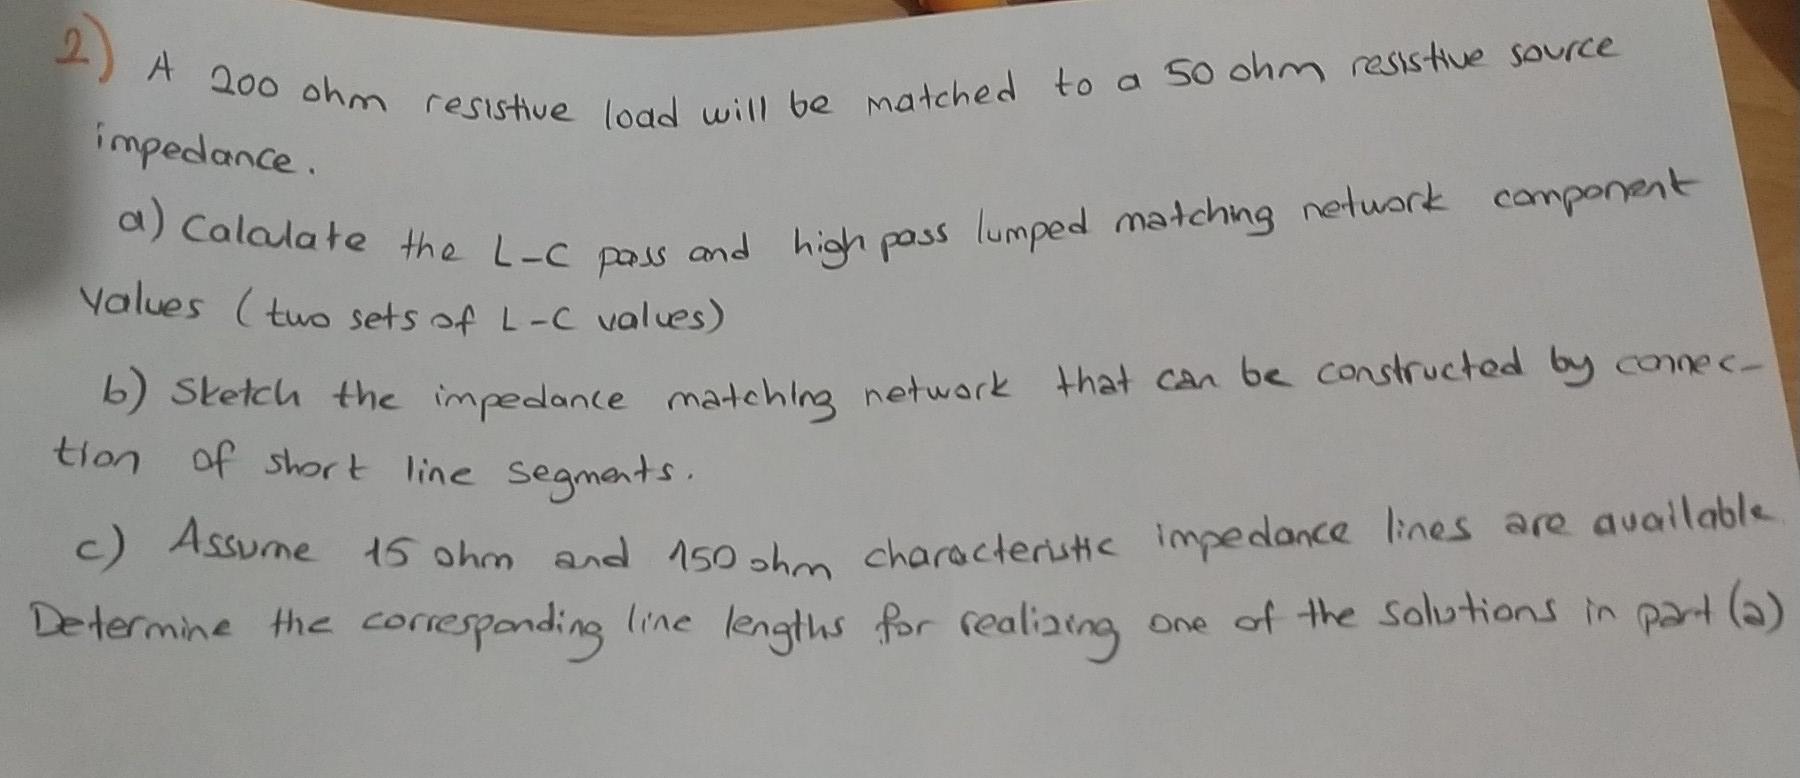 2) A 200 ohm resistive load will be matched to a 50 ohm resistive source
impedance.
a) Calculate the L-C pass and high pass lumped matching network component
values (two sets of L-C values)
b) Sketch the impedance matching network that can be constructed by connec-
tion of short line segments.
c) Assume 15 ohm and 150 ohm characteristic impedance lines are available.
Determine the corresponding line lengths for realizing one of the solutions in part (a)